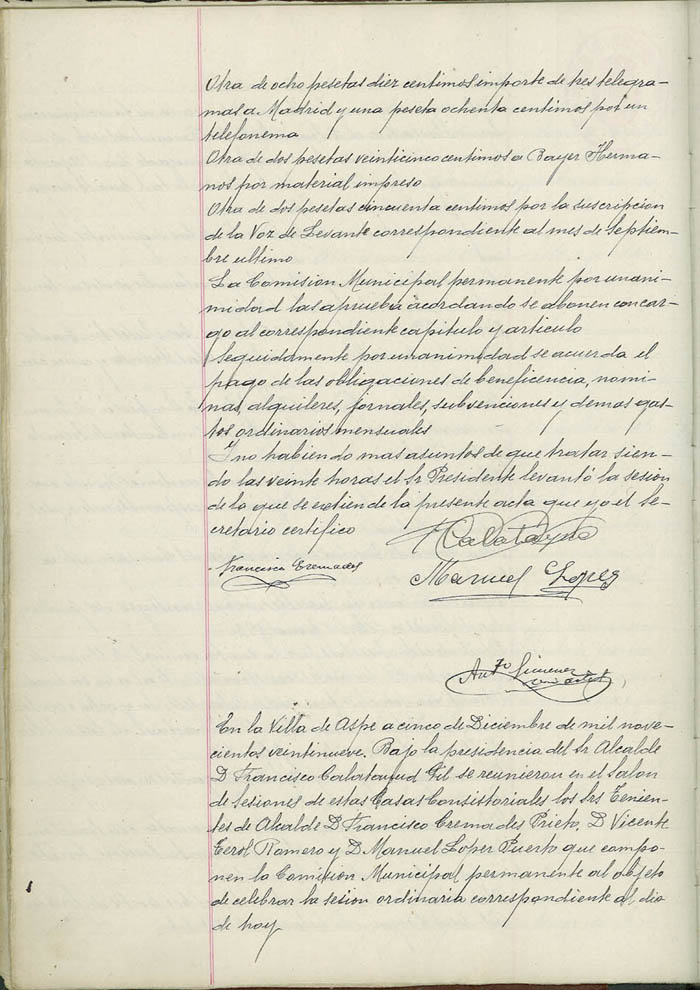 Otra de ocho pesetas diez centimos importe de tres telegra-
mas a Madrid y una peseta ochenta centimos por un
telefonema
Otra de dos pesetas veinticinco centimos a Bayer Herma-
nos por material impreso
Otra de dos pesetas cincuenta centimos por la suscripcion
de la Voz de Levante correspondiente al mes de Septiem-
bre ultimo
La Comision Municipal permanente por unani-
midad las aprueba acordando se abonen con car-
go al correspondiente capitulo y articulo
Seguidamente por unanimidad se acuerda el
pago de las obligaciones de beneficencia, nomi-
nas, alquileres, jornales, subvenciones y demas gas-
tos ordinarios mensuales
Y no habiendo mas asuntos de que tratar sien-
do las veinte horas el Sr Presidente levantó la sesion
de la que se extiende la presente acta que yo el Se-
cretario certifico
Calatayud
Francisco Cremades
Manuel Lopez
Antº Gimenez
En la Villa de Aspe a cinco de Diciembre de mil nove-
cientos veintinueve. Bajo la presidencia del Sr Alcalde
D Francisco Calatayud Gil se reunieron en el Salon
de Sesiones de estas Casas Consistoriales los Srs Tenien-
tes de Alcalde D Francisco Cremades Prieto, D Vicente
Cerol Romero y D Manuel López Puerto que compo-
nen la Comision Municipal permanente al objeto
de celebrar la sesion ordinaria correspondiente al dia
de hoy